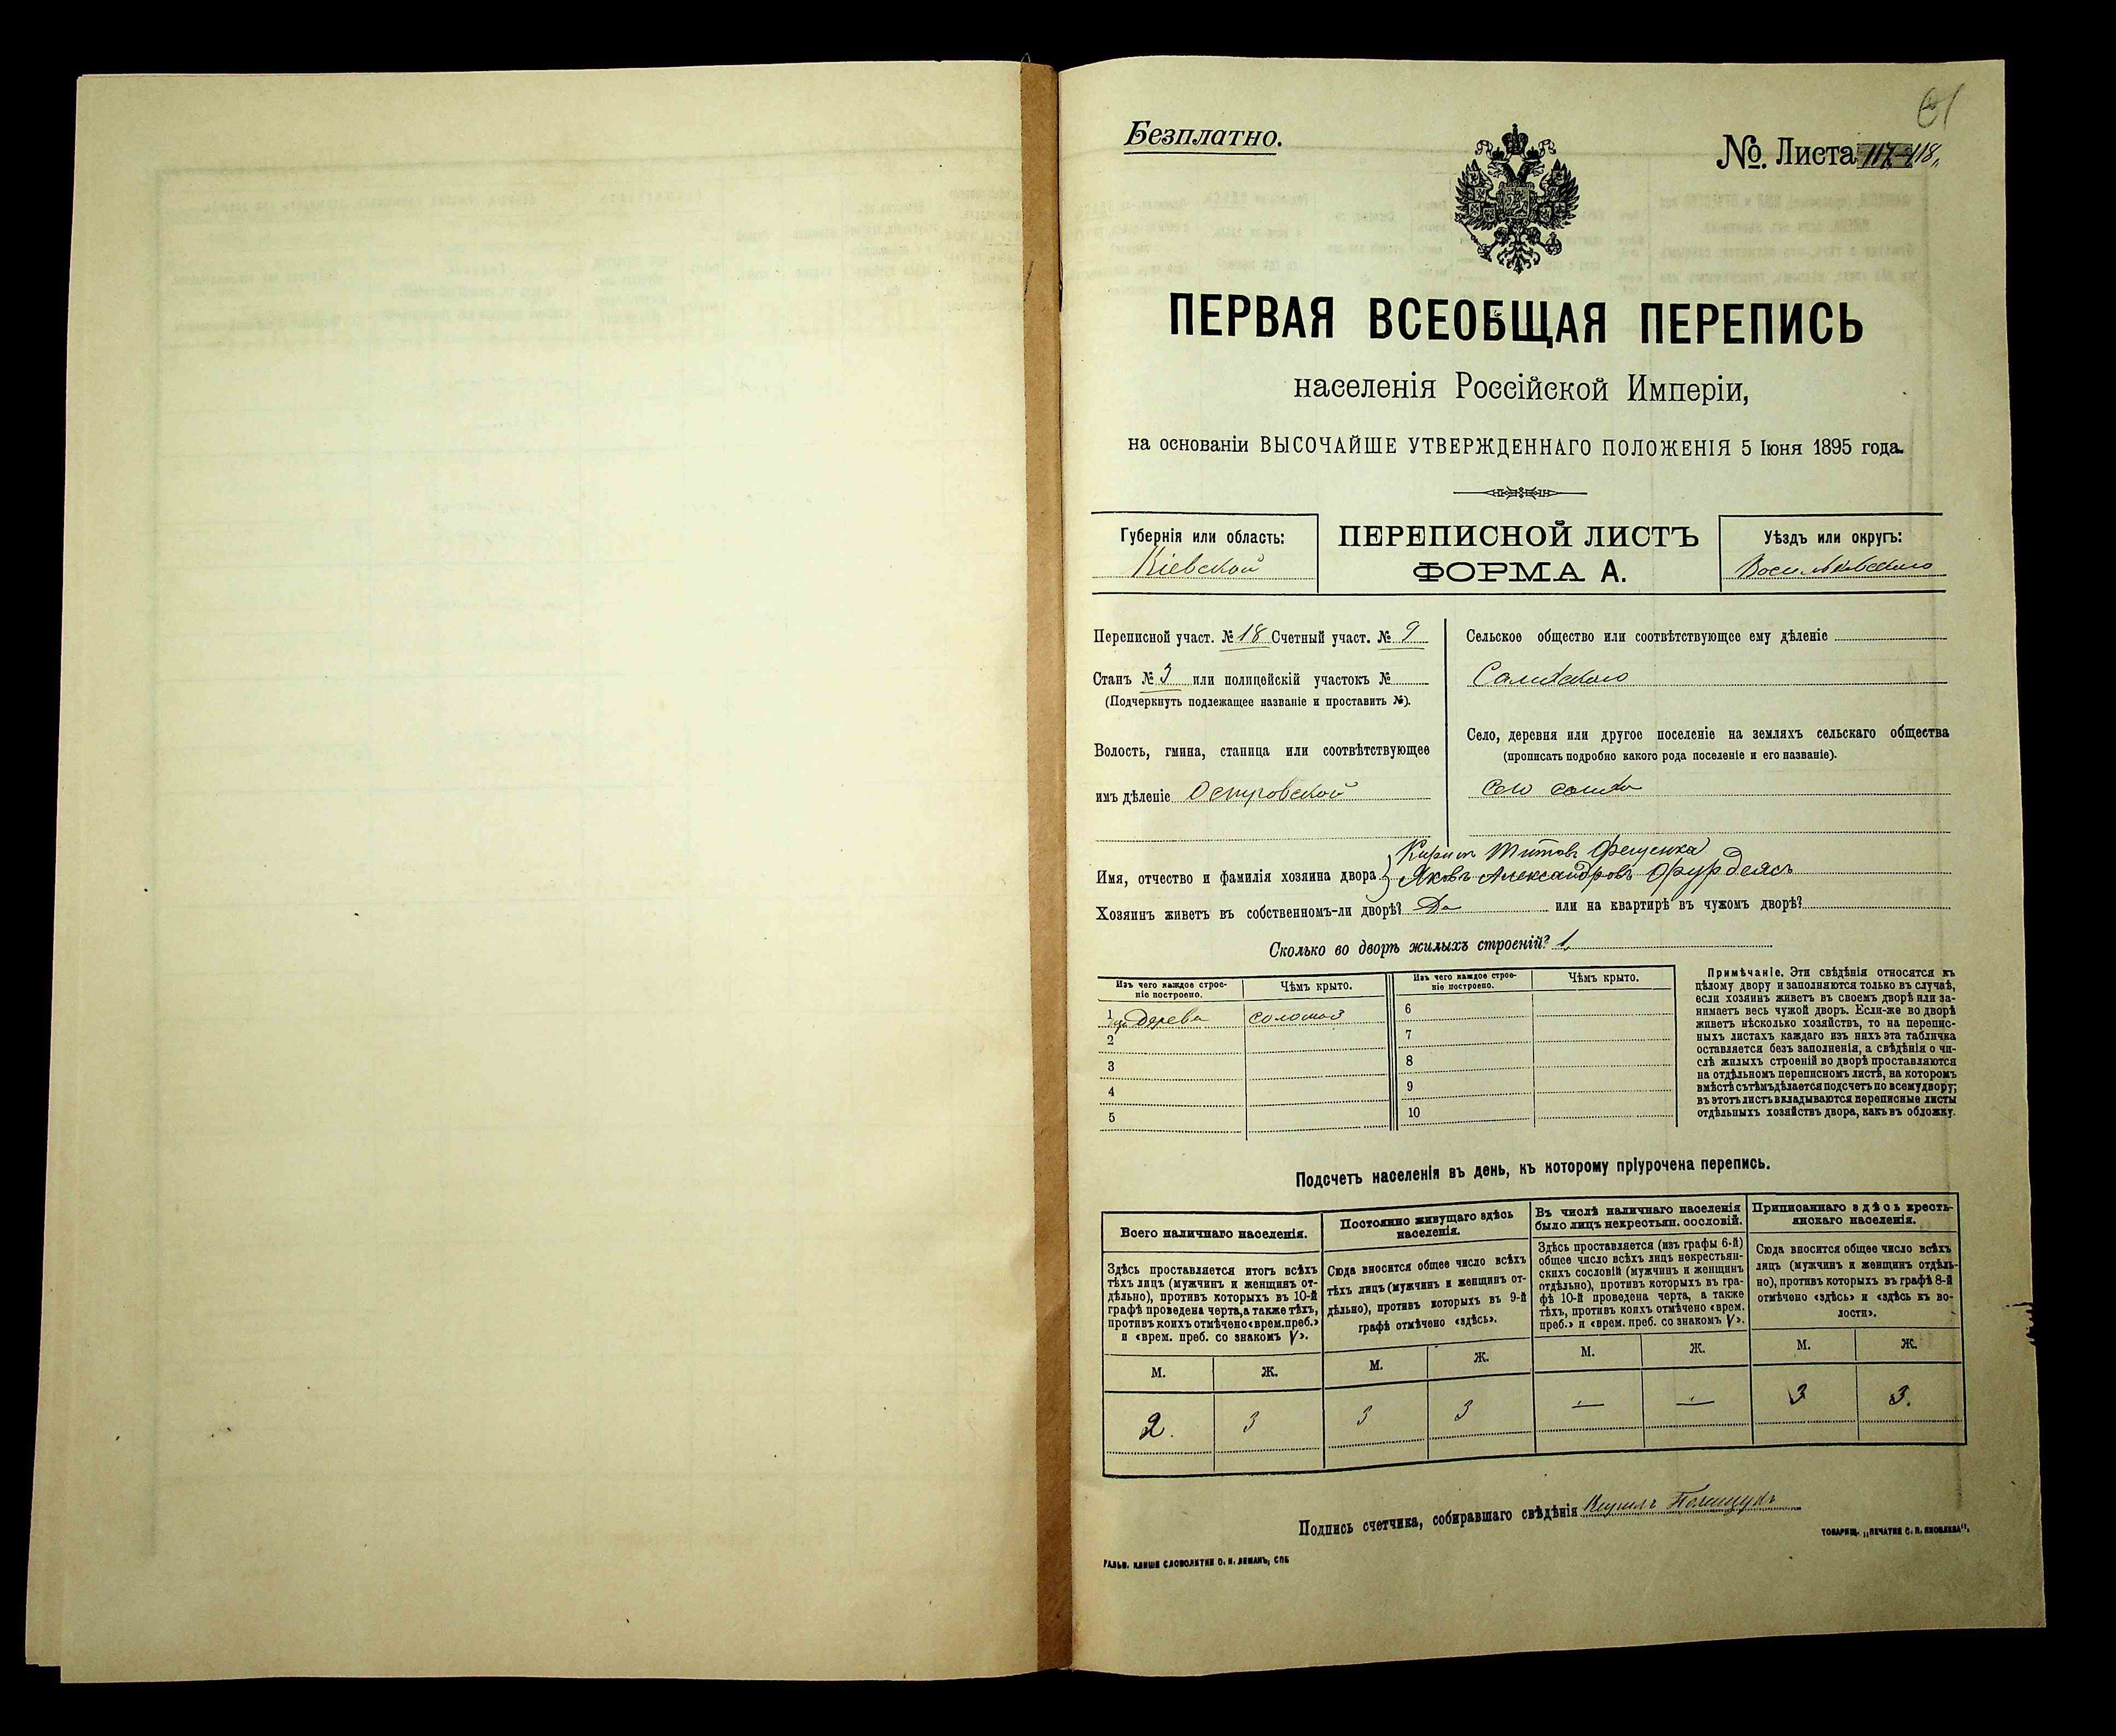 Безплатно.
№ Листа 117-118,
ПЕРВАЯ ВСЕОБЩАЯ ПЕРЕПИСЬ
населенія Россійской Имперіи,
на основаніи ВЫСОЧАЙШЕ УТВЕРЖДЕННАГО ПОЛОЖЕНІЯ 5 Іюня 1895 года.
Губернія или область:
Кіевской
ПЕРЕПИСНОЙ ЛИСТЪ
ФОРМА А.
Уѣздъ или округъ:
Васильковскаго
Переписной участ. № 18 Счетный участ. № 9
Станъ № 3 или полицейскій участокъ №
(Подчеркнуть подлежащее названіе и проставить №).
Волость, гмина, станица или соотвѣтствующее
имъ дѣленіе Островской
Сельское общество или соотвѣтствующее ему дѣленіе
Село, деревня или другое поселеніе на земляхъ сельскаго общества
(прописать подробно какого рода поселеніе и его названіе).
Село
Кирилъ Титовъ Фещенко
Имя, отчество и фамилія хозяина двора Яковъ Александровъ
Хозяинъ живетъ въ собственномъ-ли дворѣ? Да или на квартирѣ въ чужомъ дворѣ?
Сколько во дворѣ жилыхъ строеній? 1,
Изъ чего каждое строе-
ніе построено.
Чѣмъ крыто.
Изъ чего каждое строе-
ніе построено.
Чѣмъ крыто.
1 изъ дерева соломой
2
3
4
5
6
7
8
9
10
Примѣчаніе. Эти свѣдѣнія относятся къ
цѣлому двору и заполняются только въ случаѣ,
если хозяинъ живетъ въ своемъ дворѣ или за-
нимаетъ весь чужой дворъ. Если-же во дворѣ
живетъ нѣсколько хозяйствъ, то на перепис-
ныхъ листахъ каждаго изъ нихъ эта табличка
оставляется безъ заполненія, а свѣдѣнія о чи-
слѣ жилыхъ строеній во дворѣ проставляются
на отдѣльномъ переписномъ листѣ, на которомъ
вмѣстѣ съ тѣмъ дѣлается подсчетъ по всему двору;
въ этотъ листъ вкладываются переписные листы
отдѣльныхъ хозяйствъ двора, какъ въ обложку.
Подсчетъ населенія въ день, къ которому пріурочена перепись.
Всего наличнаго населенія.
Здѣсь проставляется итогъ всѣхъ
тѣхъ лицъ (мужчинъ и женщинъ от-
дѣльно), противъ которыхъ въ 10-й
графѣ проведена черта, а также тѣхъ,
противъ коихъ отмѣчено «врем. преб.»
и «врем. преб. со знакомъ V».
Постоянно живущаго здѣсь
населенія.
Сюда вносится общее число всѣхъ
тѣхъ лицъ (мужчинъ и женщинъ от-
дѣльно), противъ которыхъ въ 9-й
графѣ отмѣчено «здѣсь».
Въ числѣ наличнаго населенія
было лицъ некрестьян. сословій.
Здѣсь проставляется (изъ графы 6-й)
общее число всѣхъ лицъ некрестьян-
скихъ сословій (мужчинъ и женщинъ
отдѣльно), противъ которыхъ въ гра-
фѣ 10-й проведена черта, а также
тѣхъ, противъ коихъ отмѣчено «врем.
преб.» и «врем. преб. со знакомъ V».
Приписаннаго здѣсь кресть-
янскаго населенія.
Сюда вносится общее число всѣхъ
лицъ (мужчинъ и женщинъ отдѣль-
но), противъ которыхъ въ графѣ 8-й
отмѣчено «здѣсь» и «здѣсь къ во-
лости».
М. Ж. М. Ж. М. Ж. М. Ж.
2. 3 3 3 — — 3 3.
Подпись счетчика, собиравшаго свѣдѣнія Кирилъ Полищукъ
ТОВАРИЩ. „ПЕЧАТНЯ С. П. ЯКОВЛЕВА".
ГАЛЬВ. КЛИШЕ СЛОВОЛИТНИ О. И. ЛЕМАНЪ, СПБ